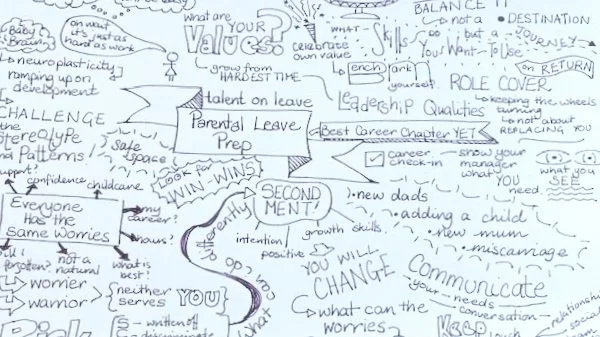 Baby
Brain
neuroplasticity
ramping up on
development
oh wait
it's just as
hard as work
what are
YOUR
Values?
grow from
HARDEST TIME
celebrate
own value
WHAT
Skills
do
You Want To Use
BALANCE IT
not a DESTINATION
but a JOURNEY
on RETURN
bench mark
yourself
ROLE COVER
keeping the wheels
turning
not about
REPLACING YOU
Leadership Qualities
talent on leave
Parental Leave
Prep
Best Career Chapter YET
CHALLENGE
the
Stereotype
Patterns!
safe
space
Look for
WIN-WINS
career
check-in
show your
manager
what YOU
need
what you
SEE
support?
confidence
childcare
Everyone
Has the
Same Worries
my
career?
hours?
forgotten?
not a
natural
what is
best?
worrier
warrior
neither
serves
YOU
written off
SECOND
MENT!
intention
positive
growth
skills
what can I do differently
new dads
adding a child
new mum
miscarriage
YOU WILL
CHANGE
what can the
worries
Communicate
your needs
conversation
Keep
relationship
social